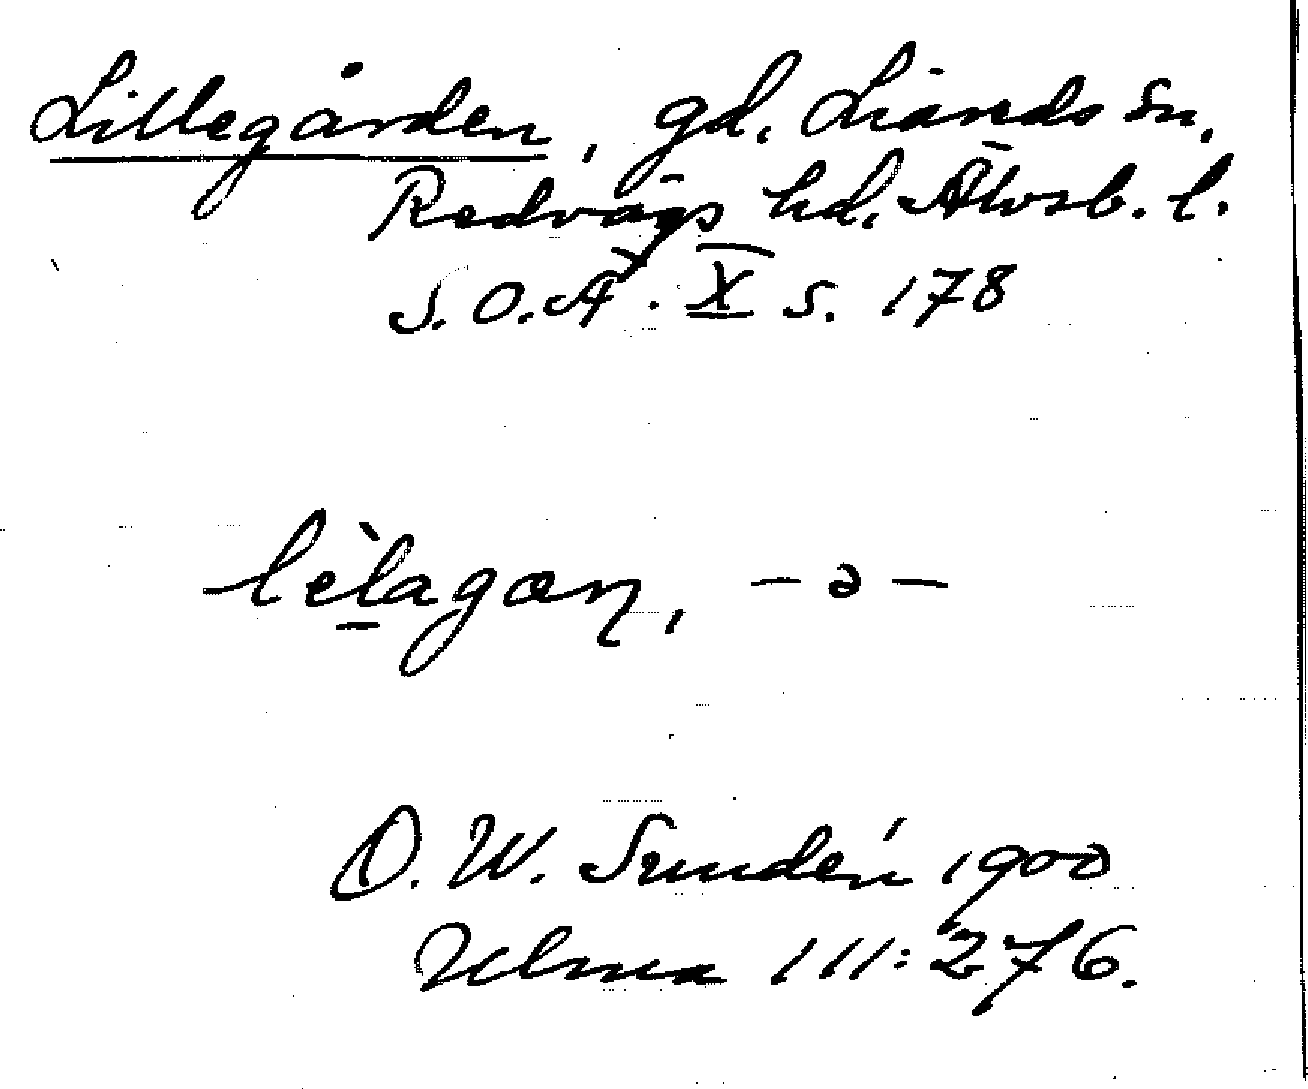 Lillegården, gd. Liareds sn,
Redvägs hd. Älvsb. l.
S.O.Ä. X s. 178
lèlagæn, – ə –
D. W. Sundén 1900
Ulma 111:276.